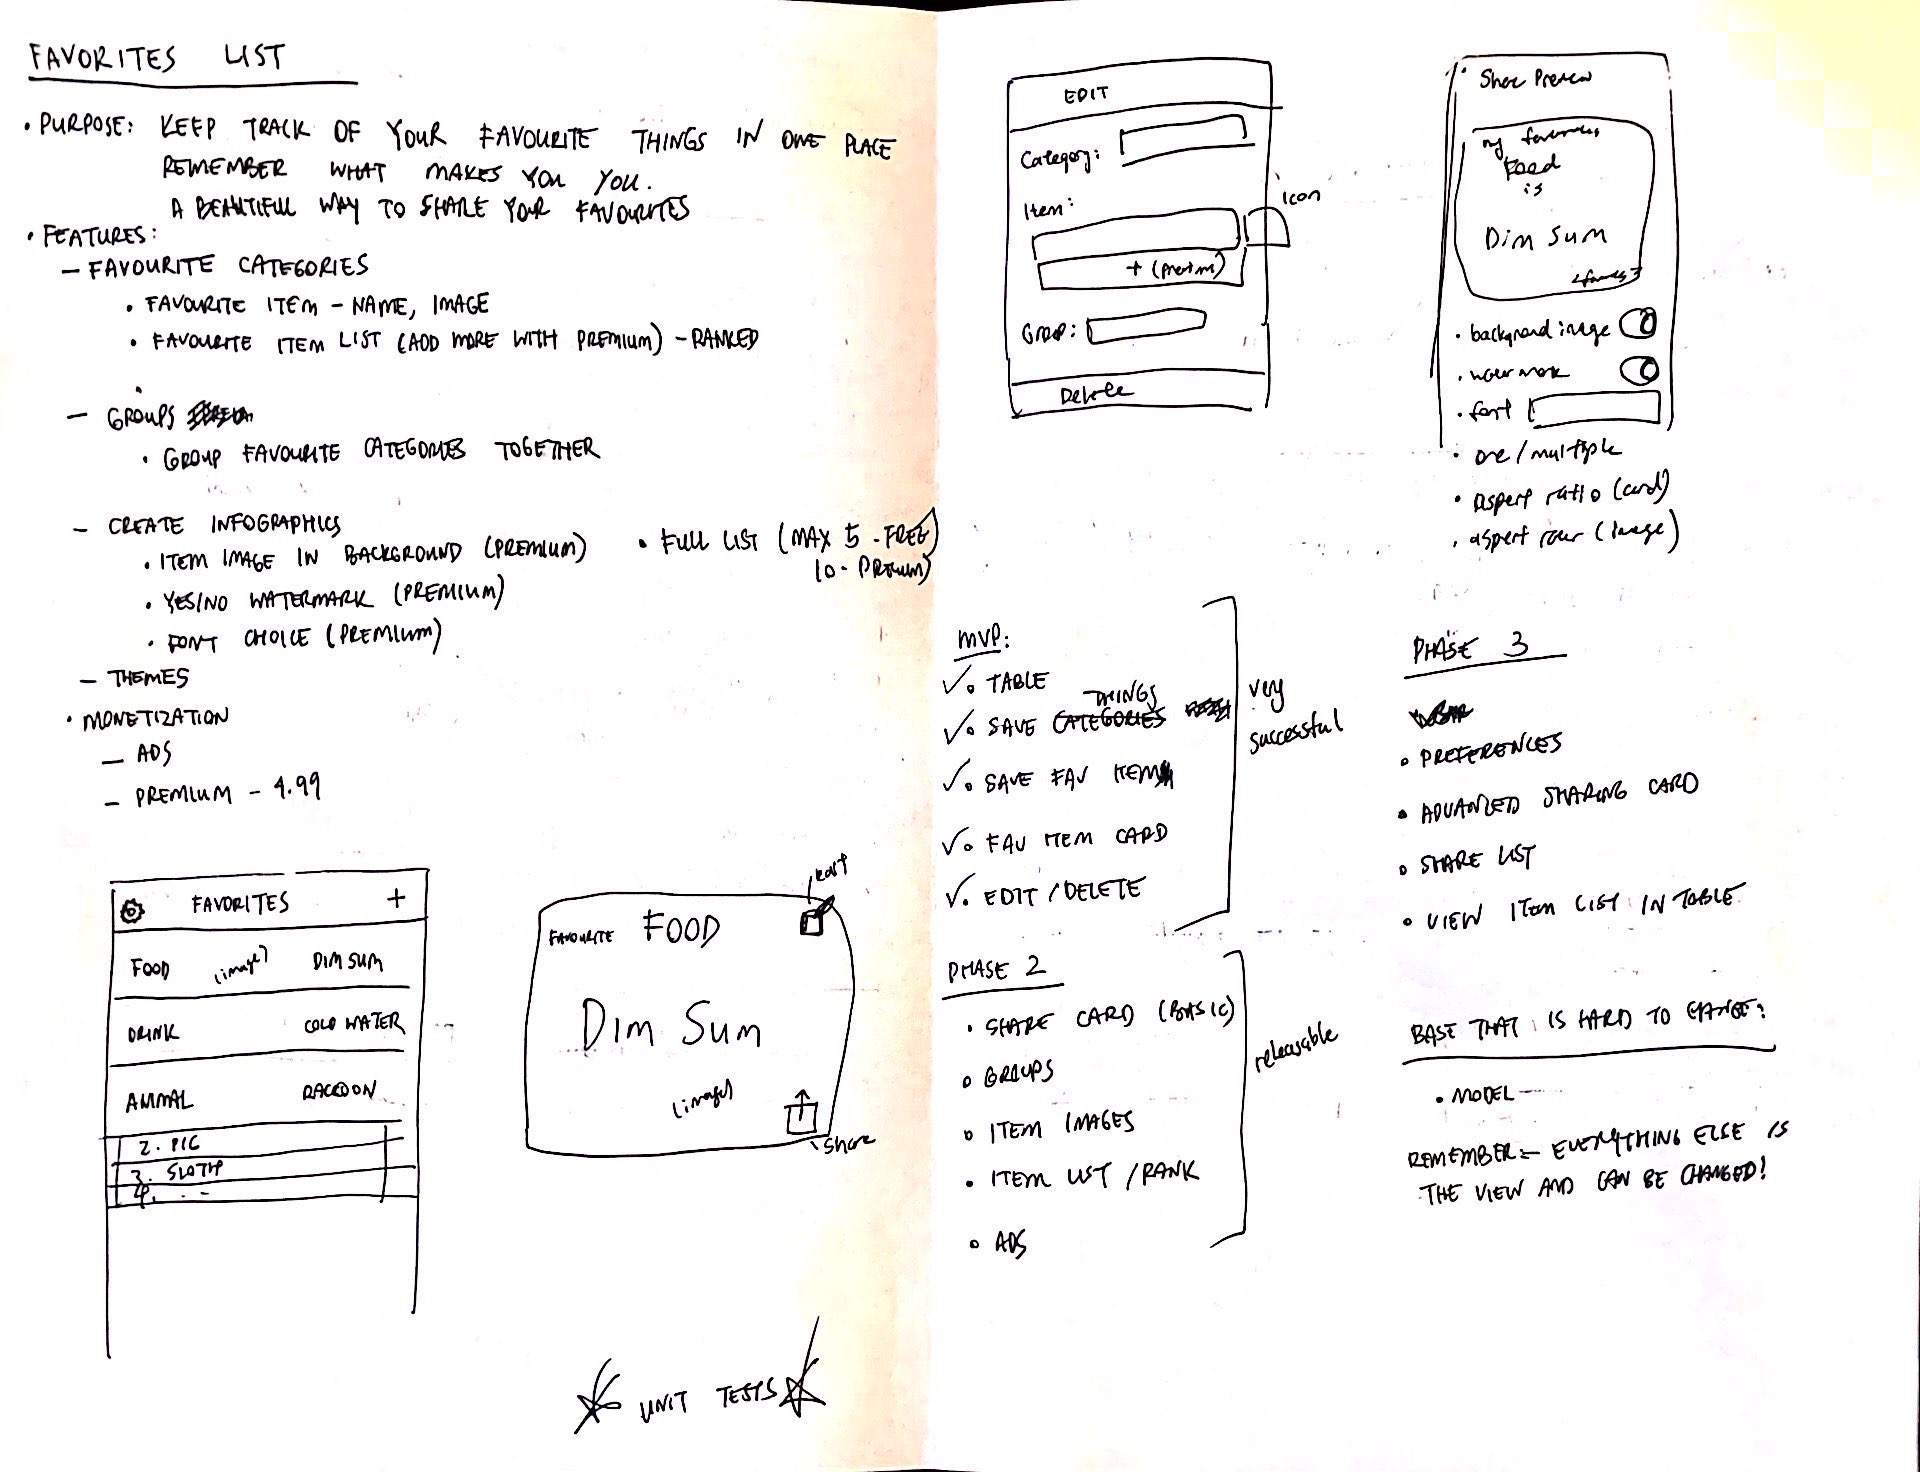 FAVORITES LIST
• PURPOSE: KEEP TRACK OF YOUR FAVOURITE THINGS IN ONE PLACE
REMEMBER WHAT MAKES YOU YOU.
A BEAUTIFUL WAY TO SHARE YOUR FAVOURITES
• FEATURES:
— FAVOURITE CATEGORIES
• FAVOURITE ITEM – NAME, IMAGE
• FAVOURITE ITEM LIST (ADD MORE WITH PREMIUM) – RANKED
— GROUPS
• GROUP FAVOURITE CATEGORIES TOGETHER
— CREATE INFOGRAPHICS
• ITEM IMAGE IN BACKGROUND (PREMIUM)
• YES/NO WATERMARK (PREMIUM)
• FONT CHOICE (PREMIUM)
• FULL LIST (MAX 5 - FREE)
10 - PREMIUM)
— THEMES
• MONETIZATION
— ADS
— PREMIUM – 4.99
FAVORITES +
FOOD (image) DIM SUM
DRINK COLD WATER
ANIMAL RACCOON
2. PIG
3. SLOTH
4. . -
FAVOURITE FOOD
Dim Sum
(image)
share
UNIT TESTS
EDIT
Category:
Item:
icon
+ (premium)
Group:
Delete
Share Preview
my favourite
Food
is
Dim Sum
• background image
• watermark
• font
• one/multiple
• aspect ratio (card)
• aspect ratio (image)
MVP:
✓• TABLE
THINGS
✓• SAVE CATEGORIES
✓• SAVE FAV ITEM
✓• FAV ITEM CARD
✓• EDIT / DELETE
very
successful
PHASE 2
• SHARE CARD (BASIC)
• GROUPS
• ITEM IMAGES
• ITEM LIST / RANK
• ADS
releasable
PHASE 3
• PREFERENCES
• ADVANCED SHARING CARD
• SHARE LIST
• VIEW ITEM LIST IN TABLE
BASE THAT IS HARD TO CHANGE:
• MODEL
REMEMBER: – EVERYTHING ELSE IS
THE VIEW AND CAN BE CHANGED!